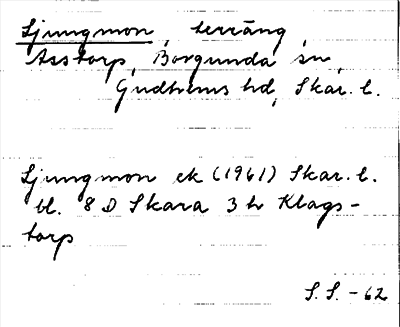 Ljungmon, terräng,
Asstorp, Borgunda sn,
Gudhems hd, Skar. l.
Ljungmon ek (1961) Skar. l.
bl. 8 D Skara 3 h Klags-
torp
S.S. -62